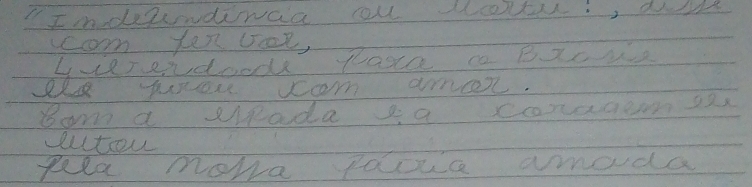 "Independência ou Morte!, disse
com fervor,
Liberdade para o Brasil
ele jurou com amor.
Com a espada e a coragem ele
lutou
pela nossa pátria amada